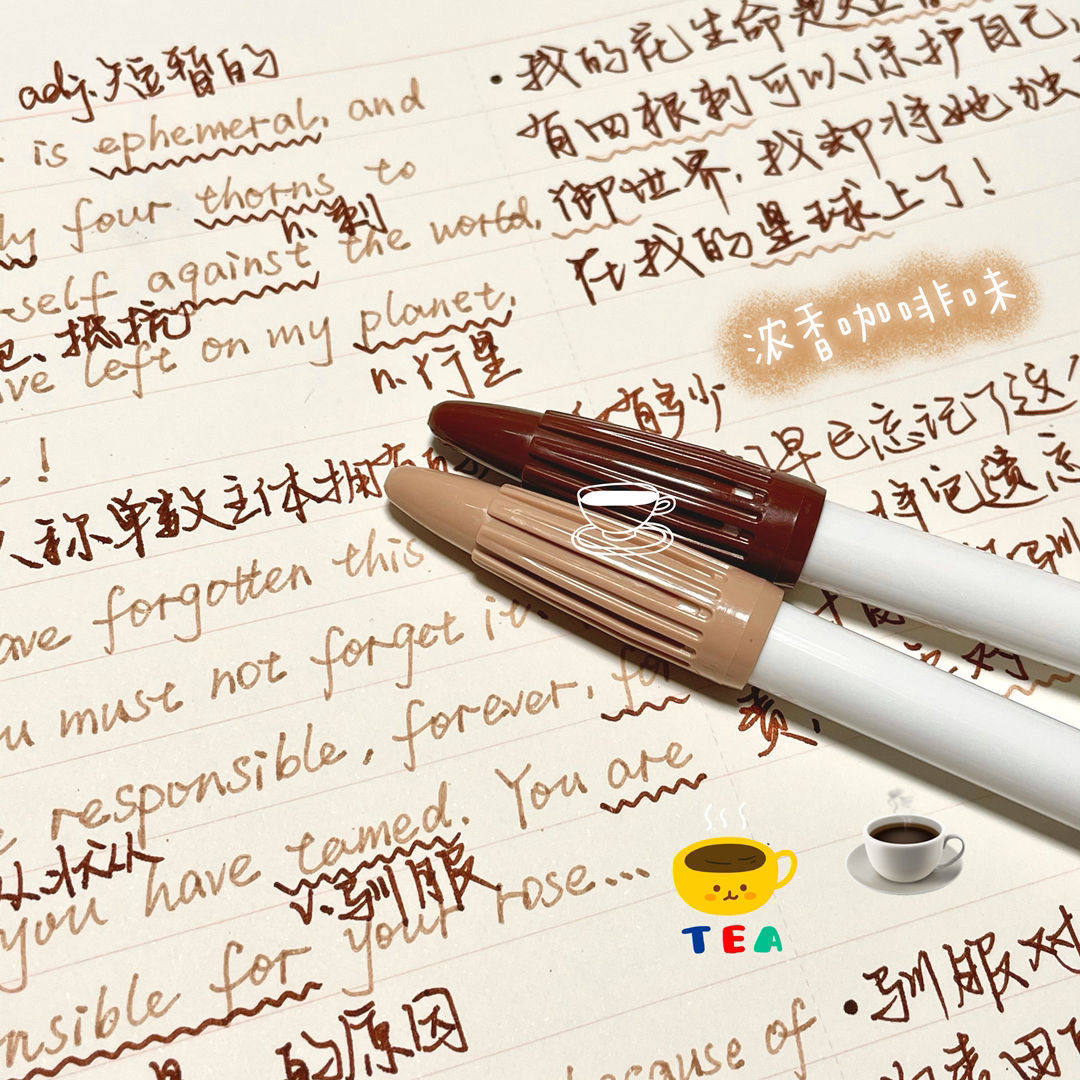 adj.短暂的
is ephemeral, and
four thorns to
n.刺
self against the world.
抵抗
left on my planet.
n.行星
!
称单数主体拥有
have forgotten this
must not forget it.
responsible, forever, for
you have tamed. You are
v.驯服
responsible for your rose...
的原因
because of
·我的花生命是短暂
有四根刺可以保护自己,
御世界,我却将她独
在我的星球上了!
浓香咖啡味
有多少
早已忘记了这个
将它遗忘
责,
TEA
·驯服对